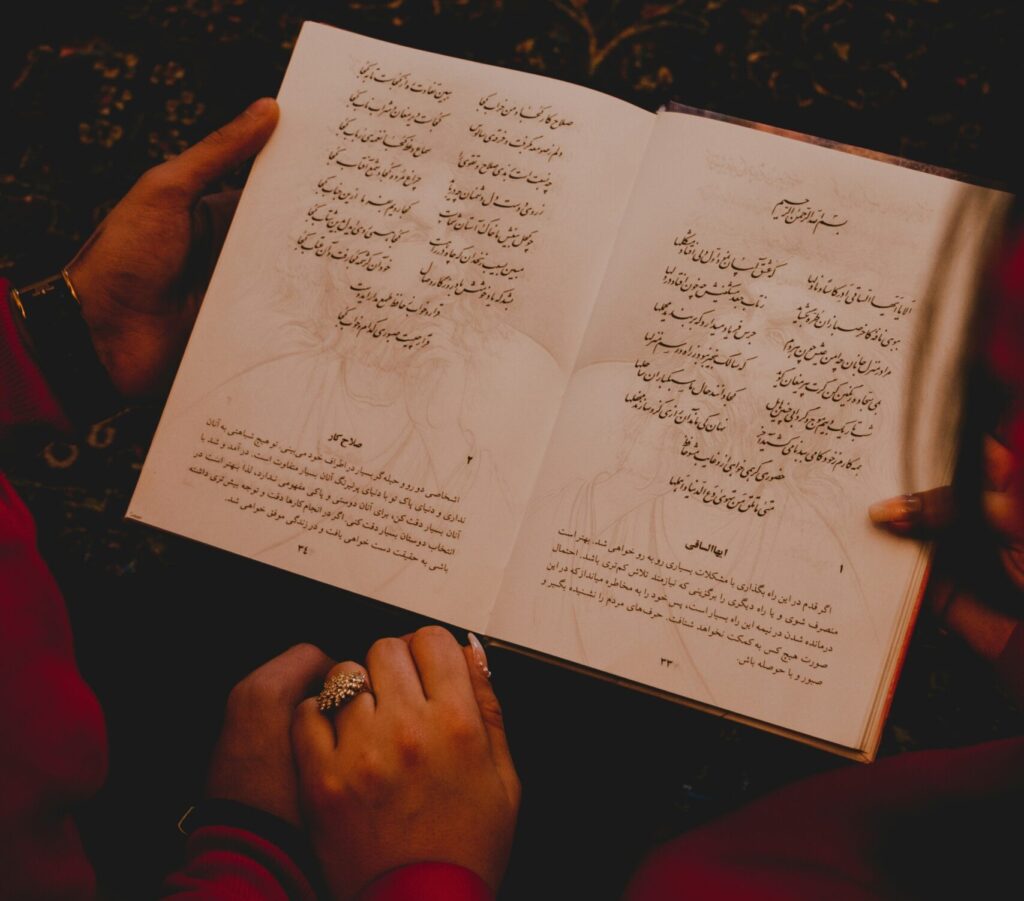 بسم الله الرحمن الرحیم
الا یا ایها الساقی ادر کاسا و ناولها که عشق آسان نمود اول ولی افتاد مشکلها
ببوی نافه‌ای کاخر صبا زان طره بگشاید ز تاب جعد مشکینش چه خون افتاد در دلها
مرا در منزل جانان چه امن عیش چون هر دم جرس فریاد میدارد که بربندید محملها
بمی سجاده رنگین کن گرت پیر مغان گوید که سالک بیخبر نبود ز راه و رسم منزلها
شب تاریک و بیم موج و گردابی چنین هایل کجا دانند حال ما سبکباران ساحلها
همه کارم ز خود کامی ببدنامی کشید آخر نهان کی ماند آن رازی کزو سازند محفلها
حضوری گر همی خواهی ازو غایب مشو حافظ
متی ما تلق من تهوی دع الدنیا و اهملها
۱ ایها الساقی
اگر قدم در این راه بگذاری با مشکلات بسیاری رو به رو خواهی شد. بهتر است
منصرف شوی و یا راه دیگری را برگزینی که نیازمند تلاش کم‌تری باشد. احتمال
درمانده شدن در نیمه این راه بسیار است، پس خود را به مخاطره میانداز که در این
صورت هیچ کس به کمکت نخواهد شتافت. حرف‌های مردم را نشنیده بگیر و
صبور و با حوصله باش.
۳۳
صلاح کار کجا و من خراب کجا ببین تفاوت ره از کجاست تا بکجا
دلم ز صومعه بگرفت و خرقه‌ی سالوس کجاست دیر مغان و شراب ناب کجا
چه نسبت است برندی صلاح و تقوی را سماع وعظ کجا نغمه‌ی رباب کجا
ز روی دوست دل دشمنان چه دریابد چراغ مرده کجا شمع آفتاب کجا
چو کحل بینش ما خاک آستان شماست کجا رویم بفرما ازین جناب کجا
مبین بسیب زنخدان که چاه در راهست کجا همی روی ای دل بدین شتاب کجا
بشد که یاد خوشش باد روزگار وصال خود آن کرشمه کجا رفت و آن عتاب کجا
قرار و خواب ز حافظ طمع مدار ای دوست
قرار چیست صبوری کدام و خواب کجا
۲ صلاح کار
اشخاصی دو رو و حیله‌گر بسیار در اطراف خود می‌بینی. تو هیچ شباهتی به آنان
نداری و دنیای پاک تو با دنیای پرنیرنگ آنان بسیار متفاوت است. درآمد و شد با
آنان بسیار دقت کن، برای آنان دوستی و پاکی مفهومی ندارد، لذا بهتر است در
انتخاب دوستان بسیار دقت کنی. اگر در انجام کارها دقت و توجه بیش‌تری داشته
باشی به حقیقت دست خواهی یافت و در زندگی موفق خواهی شد.
۳٤